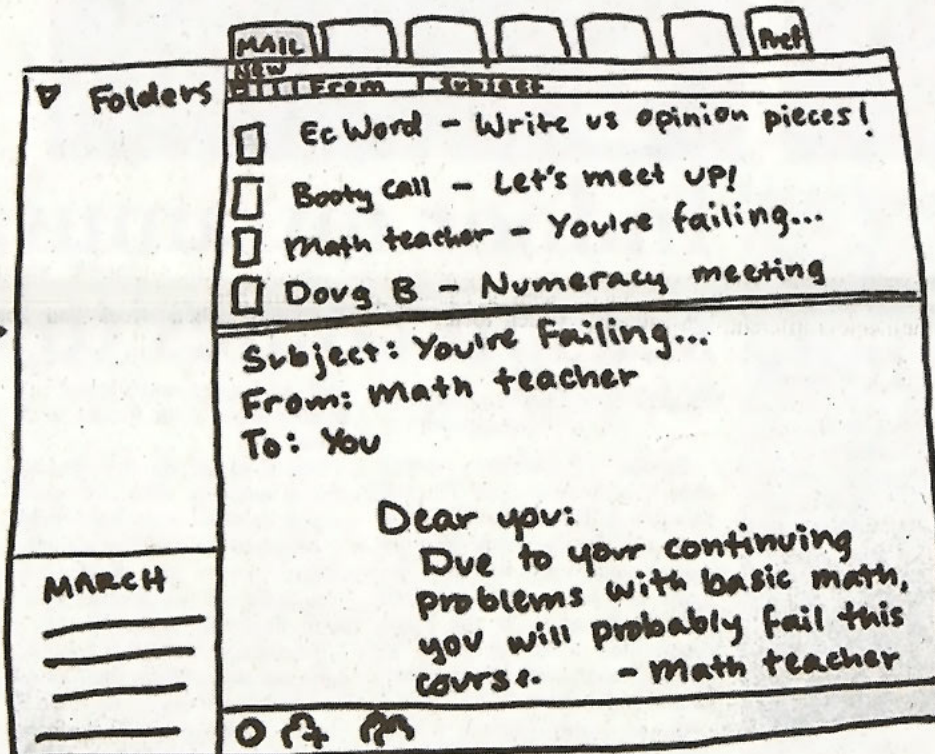 MAIL
Pref
New
▼ Folders
From | Subject
Ec Word - Write us opinion pieces!
Booty call - Let's meet up!
Math teacher - You're failing...
Doug B - Numeracy meeting
Subject: You're Failing...
From: Math teacher
To: You
Dear you:
Due to your continuing
problems with basic math,
you will probably fail this
course. - Math teacher
MARCH